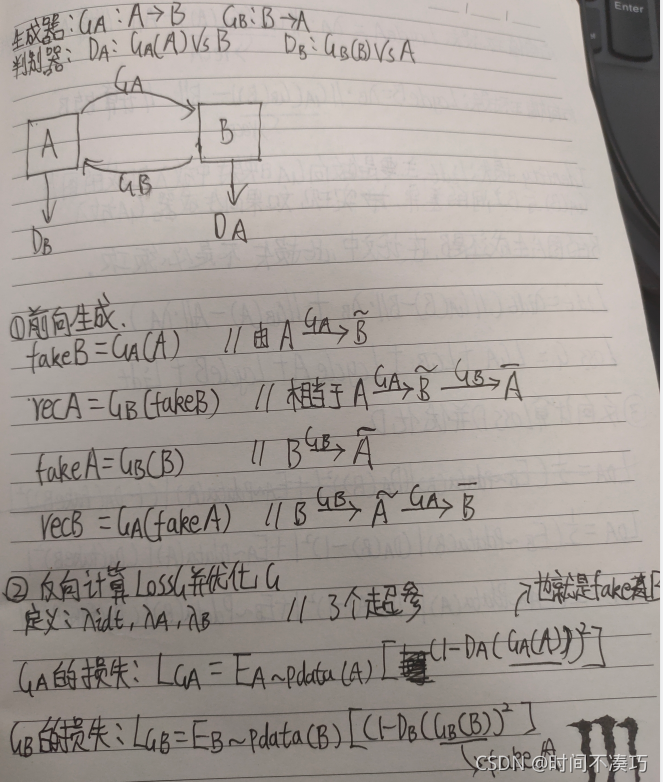 Enter
生成器:GA:A→B GB:B→A
判别器:DA:GA(A)VsB DB:GB(B)VsA
GA
A B
GB
DB DA
①前向生成.
fakeB=GA(A) //由A GA→ B̃
recA=GB(fakeB) //相当于A GA→ B̃ GB→ Ā
fakeA=GB(B) //B GB→ Ã
recB=GA(fakeA) //B GB→ Ã GA→ B̄
②反向计算LossG并优化G
定义:λidt,λA,λB //3个超参 也就是fake
GA的损失:LGA=EA~pdata(A)[(1-DA(GA(A)))²]
GB的损失:LGB=EB~pdata(B)[(1-DB(GB(B))²]
CSDN @时间不凑巧